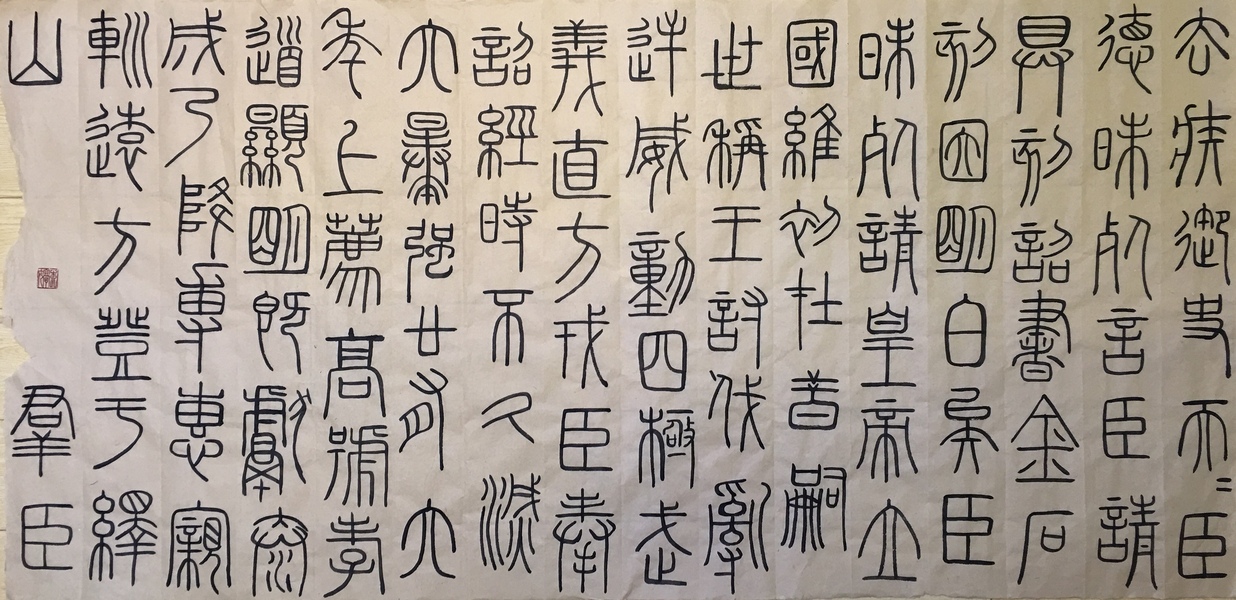 去疾御史夫=臣
德昧死言臣請
具刻詔書金石
刻因明白矣臣
昧死請皇帝立
國維初在昔嗣
世稱王討伐亂
逆威動四極武
義直方戎臣奉
詔經時不久滅
六暴強廿有六
年上薦高號孝
道顯明既獻泰
成乃降專惠親
巡遠方登于繹
山
群臣